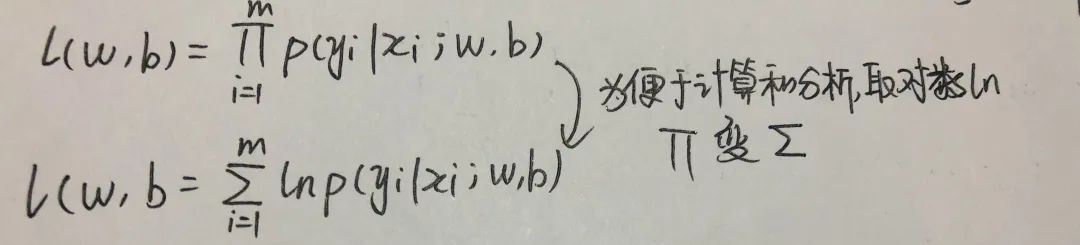 L(w,b) = ∏_{i=1}^{m} p(yi|xi;w.b)
为便于计算和分析,取对数ln
∏变Σ
l(w,b = Σ_{i=1}^{m} ln p(yi|xi;w,b)